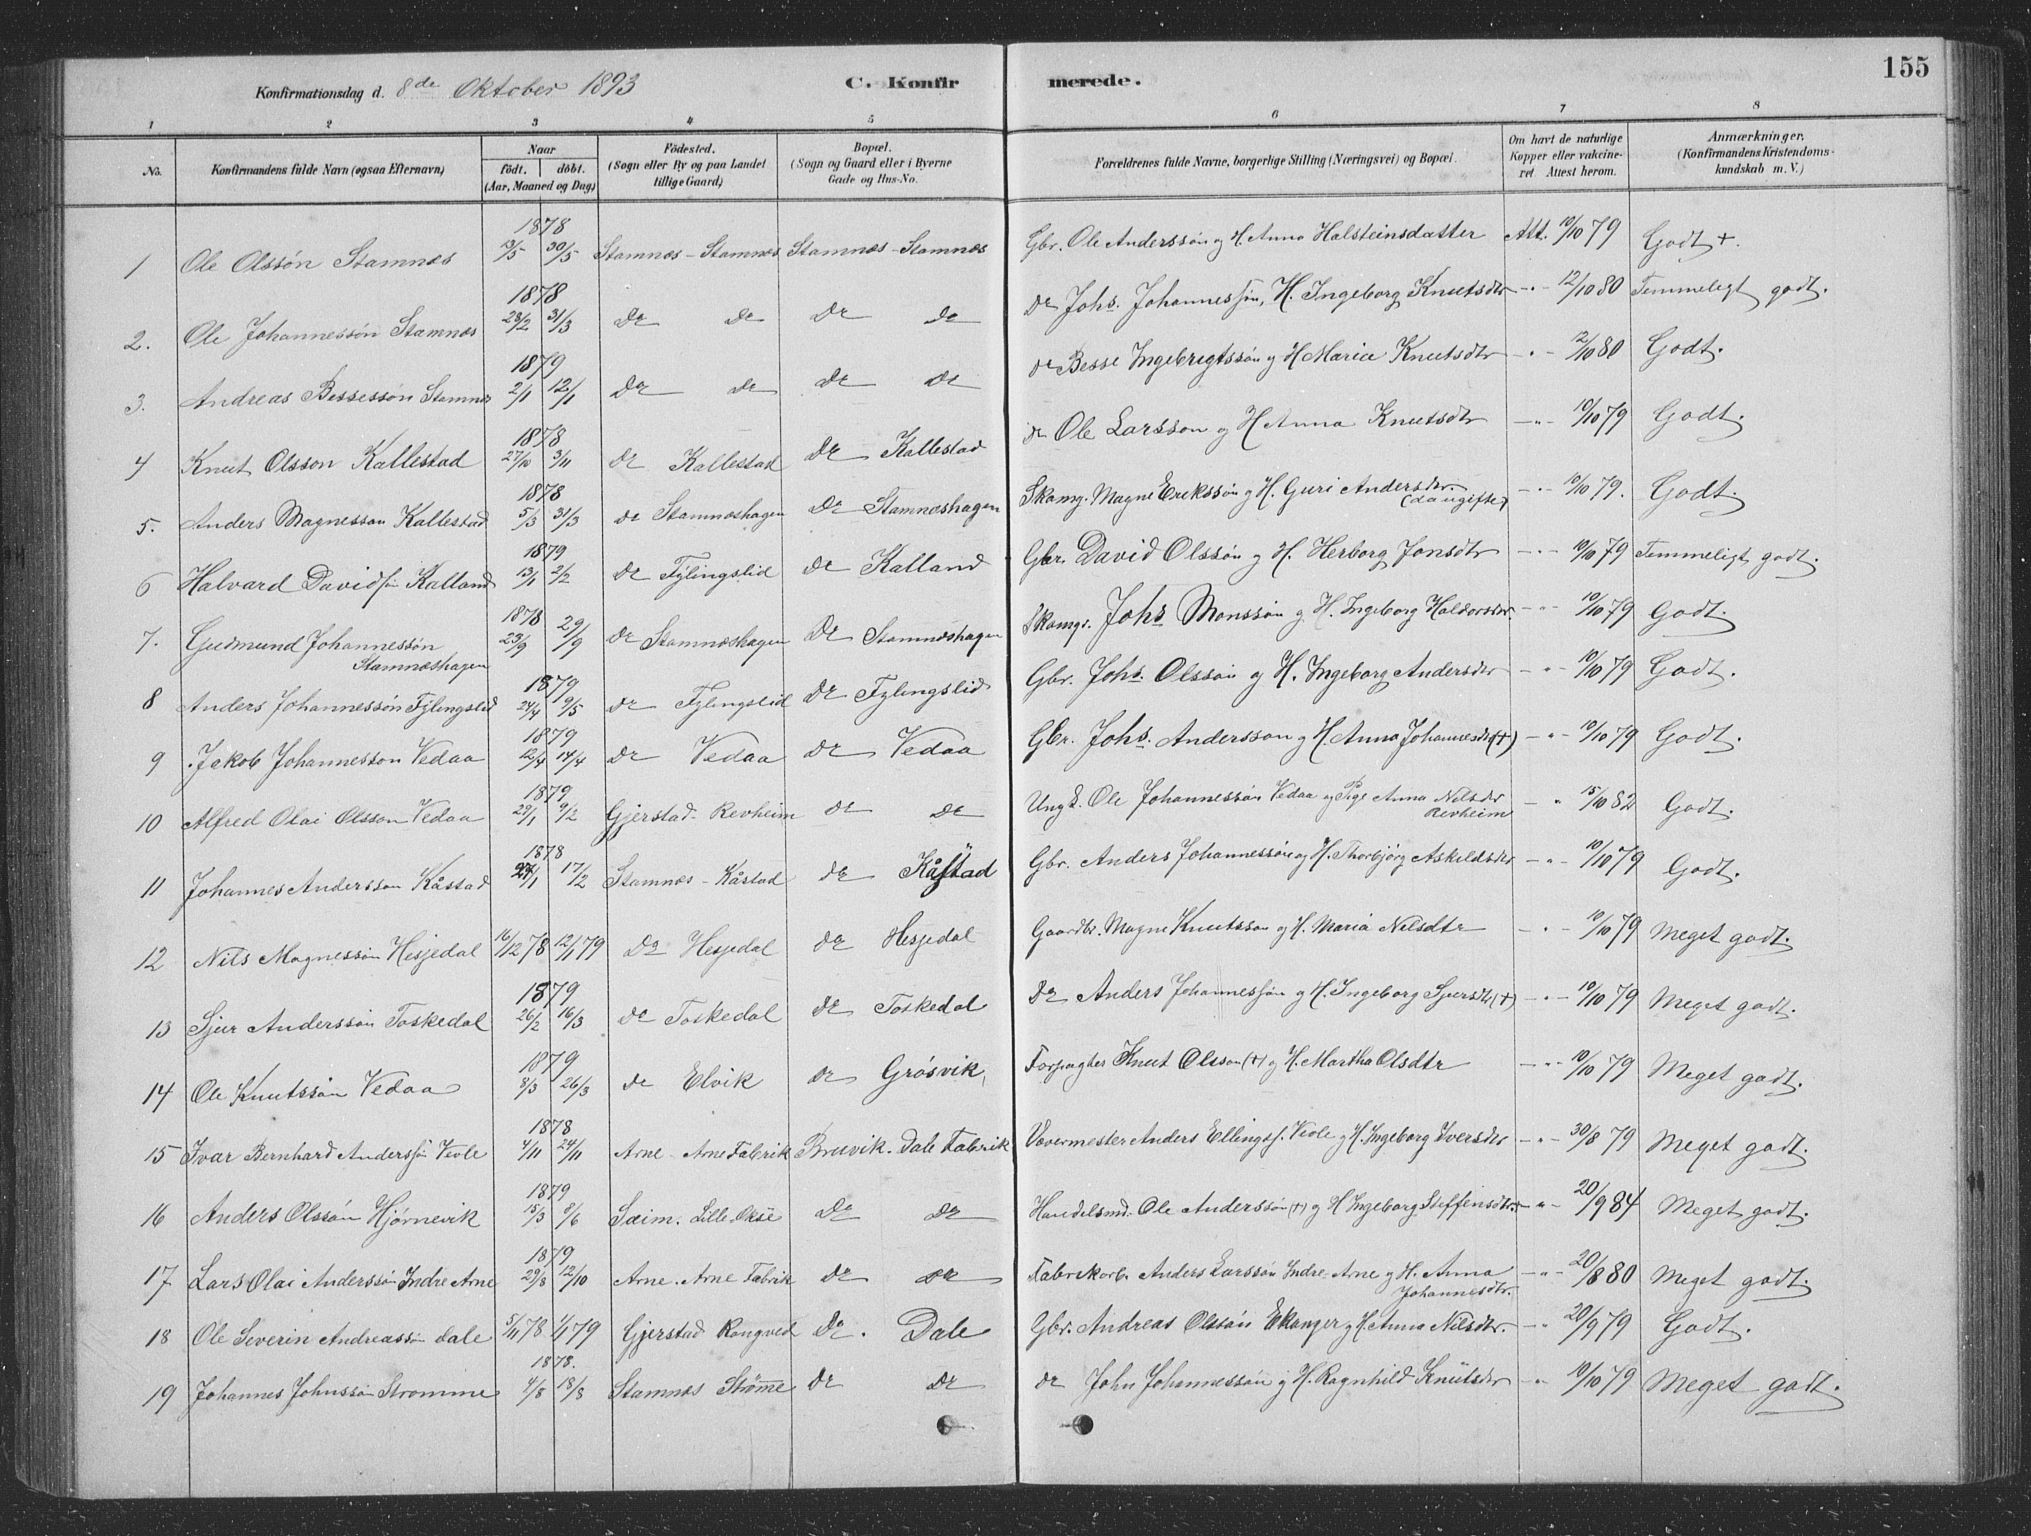 155
Konfirmationsdag d. 8de Oktober 1893 C. Konfir merede.
1 2 3 4 5 6 7 8
No. Konfirmandens fulde Navn (ogsaa Efternavn) Naar født. døbt. (Aar, Maaned og Dag) Födested. (Sogn eller By og paa Landet tillige Gaard) Bopæl. (Sogn og Gaard eller i Byerne Gade og Hus-No. Forældrenes fulde Navne, borgerlige Stilling (Næringsvei) og Bopæl. Om havt de naturlige Kopper eller vakcineret Attest herom. Anmærkninger. (Konfirmandens Kristendomskundskab m. V.)
1 Ole Olssön Stamnæs 1878 13/5 30/5 Stamnæs - Stamnæs Stamnæs - Stamnæs Gbr. Ole Anderssön og H. Anna Halsteinsdatter Att. 10/10 79 Godt +.
2. Ole Johannessön Stamnæs 1878 23/2 31/3 do do do do do Johs. Johannessön, H. Ingeborg Knutsdtr -"- 12/10 80 Temmeligt godt.
3. Andreas Bessessön Stamnæs 1879 2/1 12/1 do do do do do Besse Ingebrigtssön og H Maria Knutsdtr -"- 12/10 80 Godt.
4 Knut Olsson Kallestad 1878 27/10 3/11 do Kallestad do Kallestad do Ole Larsson og H Anna Knutsdtr -"- 10/10 79 Godt.
5. Anders Magnesson Kallestad 1878 5/3 31/3 do Stamnæshagen do Stamnæshagen Skomg. Magne Erikssön og H. Guri Andersdtr. (da ugifte) -"- 10/10 79. Godt.
6 Halvard Davidsön Kalland 1879 13/1 2/2 do Fylingslid do Kalland Gbr. David Olssön og H. Herborg Jonsdtr -"- 10/10 79 Temmeligt godt.
7. Gudmund Johannessön Stamnæshagen 1878 23/9 29/9 do Stamnæshagen do Stamnæshagen Skomgr. Johs Monssön og H. Ingeborg Haldorsdtr. -"- 10/10 79 Godt.
8 Anders Johannessön Fylingslid 1879 24/4 9/5 do Fylingslid do Fylingslid Gbr. Johs. Olsson og H. Ingeborg Andersdtr -"- 10/10 79 Godt.
9 Jakob Johannesson Vedaa 1879 12/4 14/4 do Vedaa do Vedaa Gbr. Johs. Andersson og H. Anna Johannesdtr (+) -"- 10/10 79 Godt.
10 Alfred Olai Olsson Vedaa 1879 29/1 9/2 Gjerstad - Revheim do do Ungk. Ole Johannessön Vedaa og Pige Anna Nilsdtr Revheim -"- 15/10 82 Godt.
11 Johannes Andersson Kåstad 1878 27/1 17/2 Stamnæs - Kåstad do Kåstad Gbr. Anders Johannessön og H. Thorbjörg Askildsdtr -"- 10/10 79 Godt.
12 Nils Magnessön Hesjedal 16/12 78 12/1 79 do Hesjedal do Hesjedal Gaardbr. Magne Knutsson og H. Maria Nilsdtr -"- 10/10 79 Meget godt.
13 Sjur Anderssön Toskedal 1879 26/2 16/3 do Toskedal do Toskedal do Anders Johannessön og H. Ingeborg Sjursdtr (+) -"- 10/10 79 Meget godt.
14 Ole Knutssön Vedaa 1879 8/3 26/3 do Elvik do Grösvik, Forpagter Knut Olsson (+) og H. Martha Olsdtr -"- 10/10 79 Meget godt.
15 Ivar Bernhard Anderssön Vevle 1878 4/11 24/11 Arne - Arne Fabrik Bruvik - Dale Fabrik Vævermester Anders Ellingss. Vevle og H. Ingeborg Iversdtr -"- 30/8 79 Meget godt.
16 Anders Olssön Hjörnevik 1879 15/3 8/6 Sæim. Lille Okse do do Handelsmd. Ole Anderssön (+) og H Ingeborg Steffensdtr. -"- 20/9 84 Meget godt.
17 Lars Olai Anderssön Indre Arne 1879 29/8 12/10 Arne - Arne Fabrik do do Fabrikarb. Anders Larssön Indre Arne og H. Anna Johannesdtr. -"- 20/8 80 Meget godt.
18 Ole Severin Andreassön Dale 5/11 78 1/1 79 Gjerstad Rongved do. Dale Gbr. Andreas Olssön Ekanger og H. Anna Nilsdtr. -"- 20/9 79 Godt.
19 Johannes Johnssön Strömme 1878. 4/8 18/8 Stamnæs Strömme do do do John Johannessön og H. Ragnhild Knutsdtr -"- 10/10 79 Meget godt.